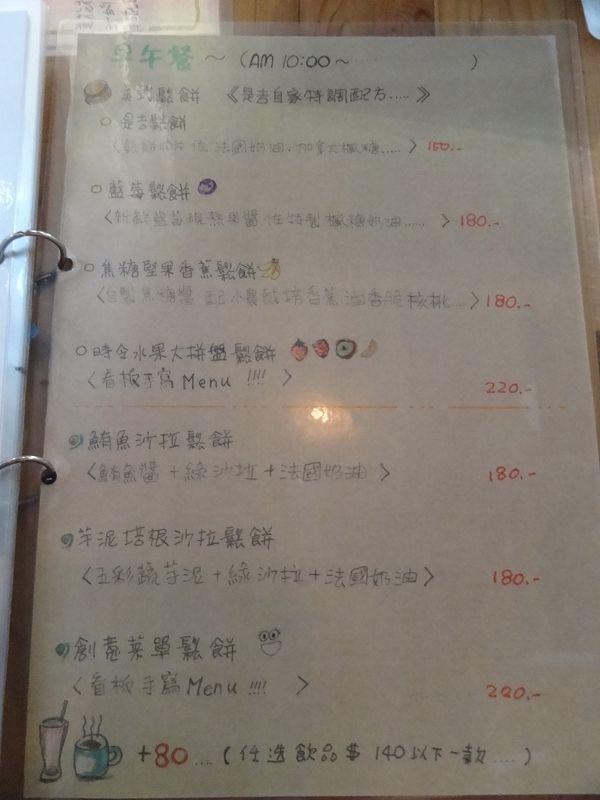 早午餐～（AM 10:00～‧‧‧‧‧ ）
英式鬆餅 《是吉自家特調配方.....》
○ 是吉鬆餅
法國奶油‧加拿大楓糖.....〉 150.-
○ 藍莓鬆餅
〈新鮮藍莓現熬果醬 佐特製楓糖奶油......〉 180.-
○ 焦糖堅果香蕉鬆餅
〈自製焦糖醬 配小農栽培香蕉 香脆核桃...〉 180.-
○ 時令水果大拼盤鬆餅
〈看板手寫Menu !!!! 〉 220.-
鮪魚沙拉鬆餅
〈鮪魚醬＋綠沙拉＋法國奶油〉 180.-
芋泥培根沙拉鬆餅
〈五彩蔬芋泥＋綠沙拉＋法國奶油〉 180.-
創意菜單鬆餅
〈看板手寫Menu !!!! 〉 220.-
+80....（任选飲品$ 140以下一款.....）